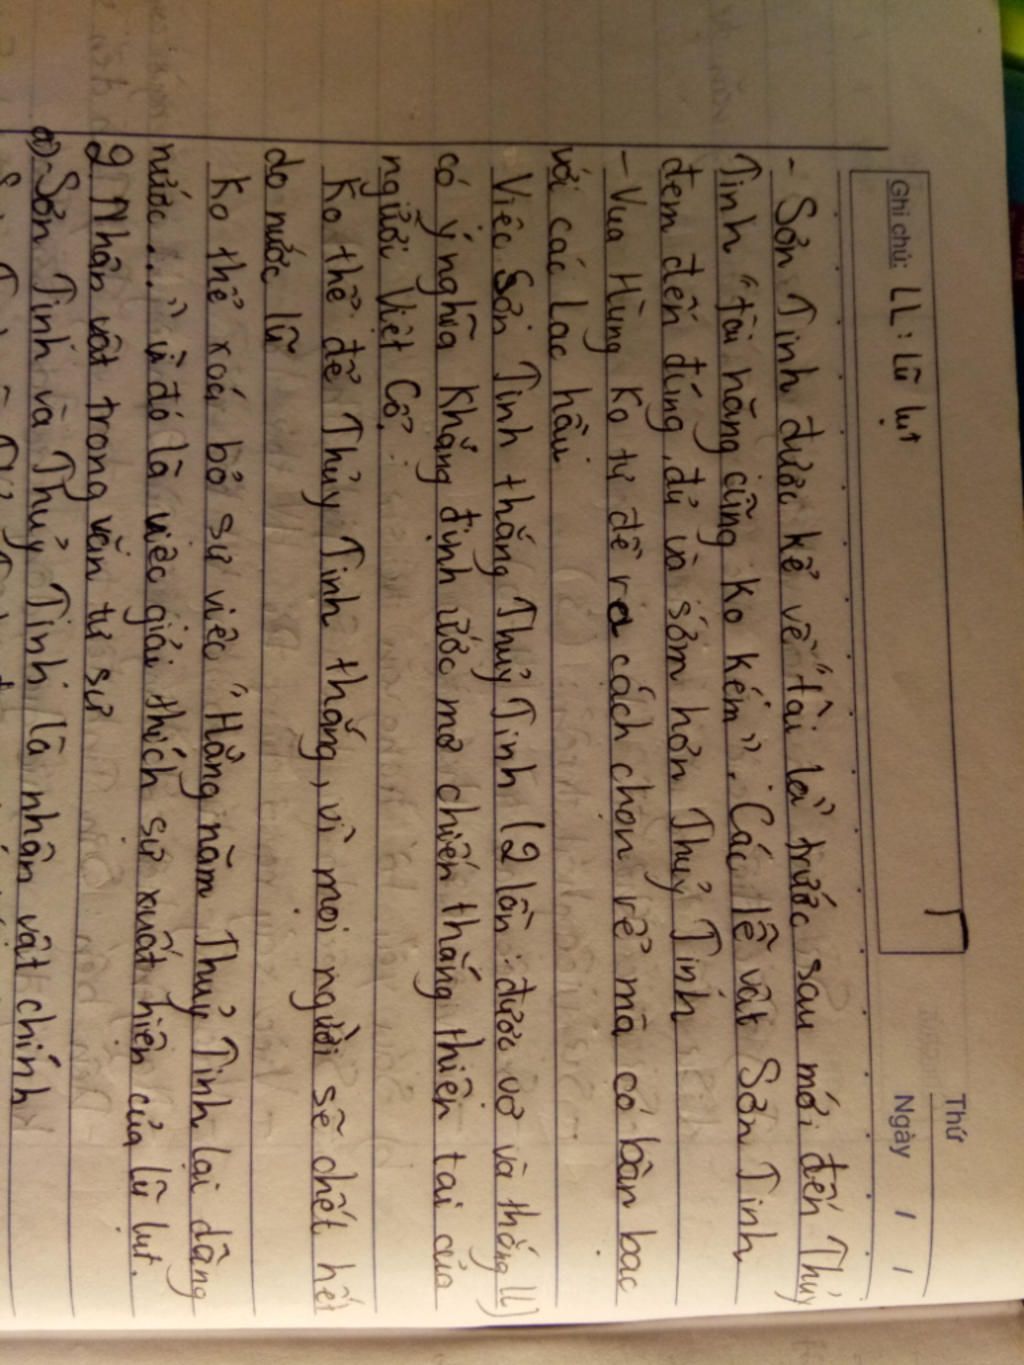 Thứ
Ngày / /
Ghi chú: LL: lũ lụt
- Sơn Tinh được kể về "tài lạ" trước sau mới đến Thủy
Tinh "tài năng cũng ko kém". Các lễ vật Sơn Tinh
đem đến đúng, đủ và sớm hơn Thủy Tinh
- Vua Hùng ko tự đề ra cách chọn rể mà có bàn bạc
với các Lạc hầu
Việc Sơn Tinh thắng Thủy Tinh (2 lần: được vợ và thắng LL)
có ý nghĩa khẳng định ước mơ chiến thắng thiên tai của
người Việt Cổ.
Ko thể để Thủy Tinh thắng, vì mọi người sẽ chết hết
do nước lũ
Ko thể xoá bỏ sự việc "Hằng năm Thủy Tinh lại dâng
nước..." vì đó là việc giải thích sự xuất hiện của lũ lụt.
2. Nhân vật trong văn tự sự
a) - Sơn Tinh và Thủy Tinh là nhân vật chính